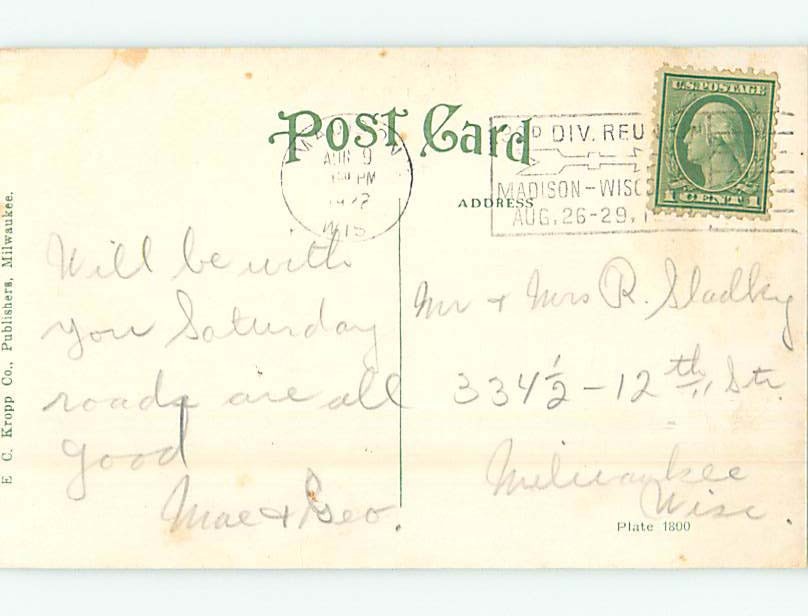 POST CARD
MADISON
AUG 9
PM
1922
WIS
DIV. REU
MADISON-WISC
AUG. 26-29,
U.S. POSTAGE
1 CENT 1
ADDRESS
Will be with
you Saturday
roads are all
good
Mae & Geo.
Mr & Mrs R. Sladky
334½ - 12th Str.
Milwaukee
Wisc.
Plate 1800
E. C. Kropp Co., Publishers, Milwaukee.